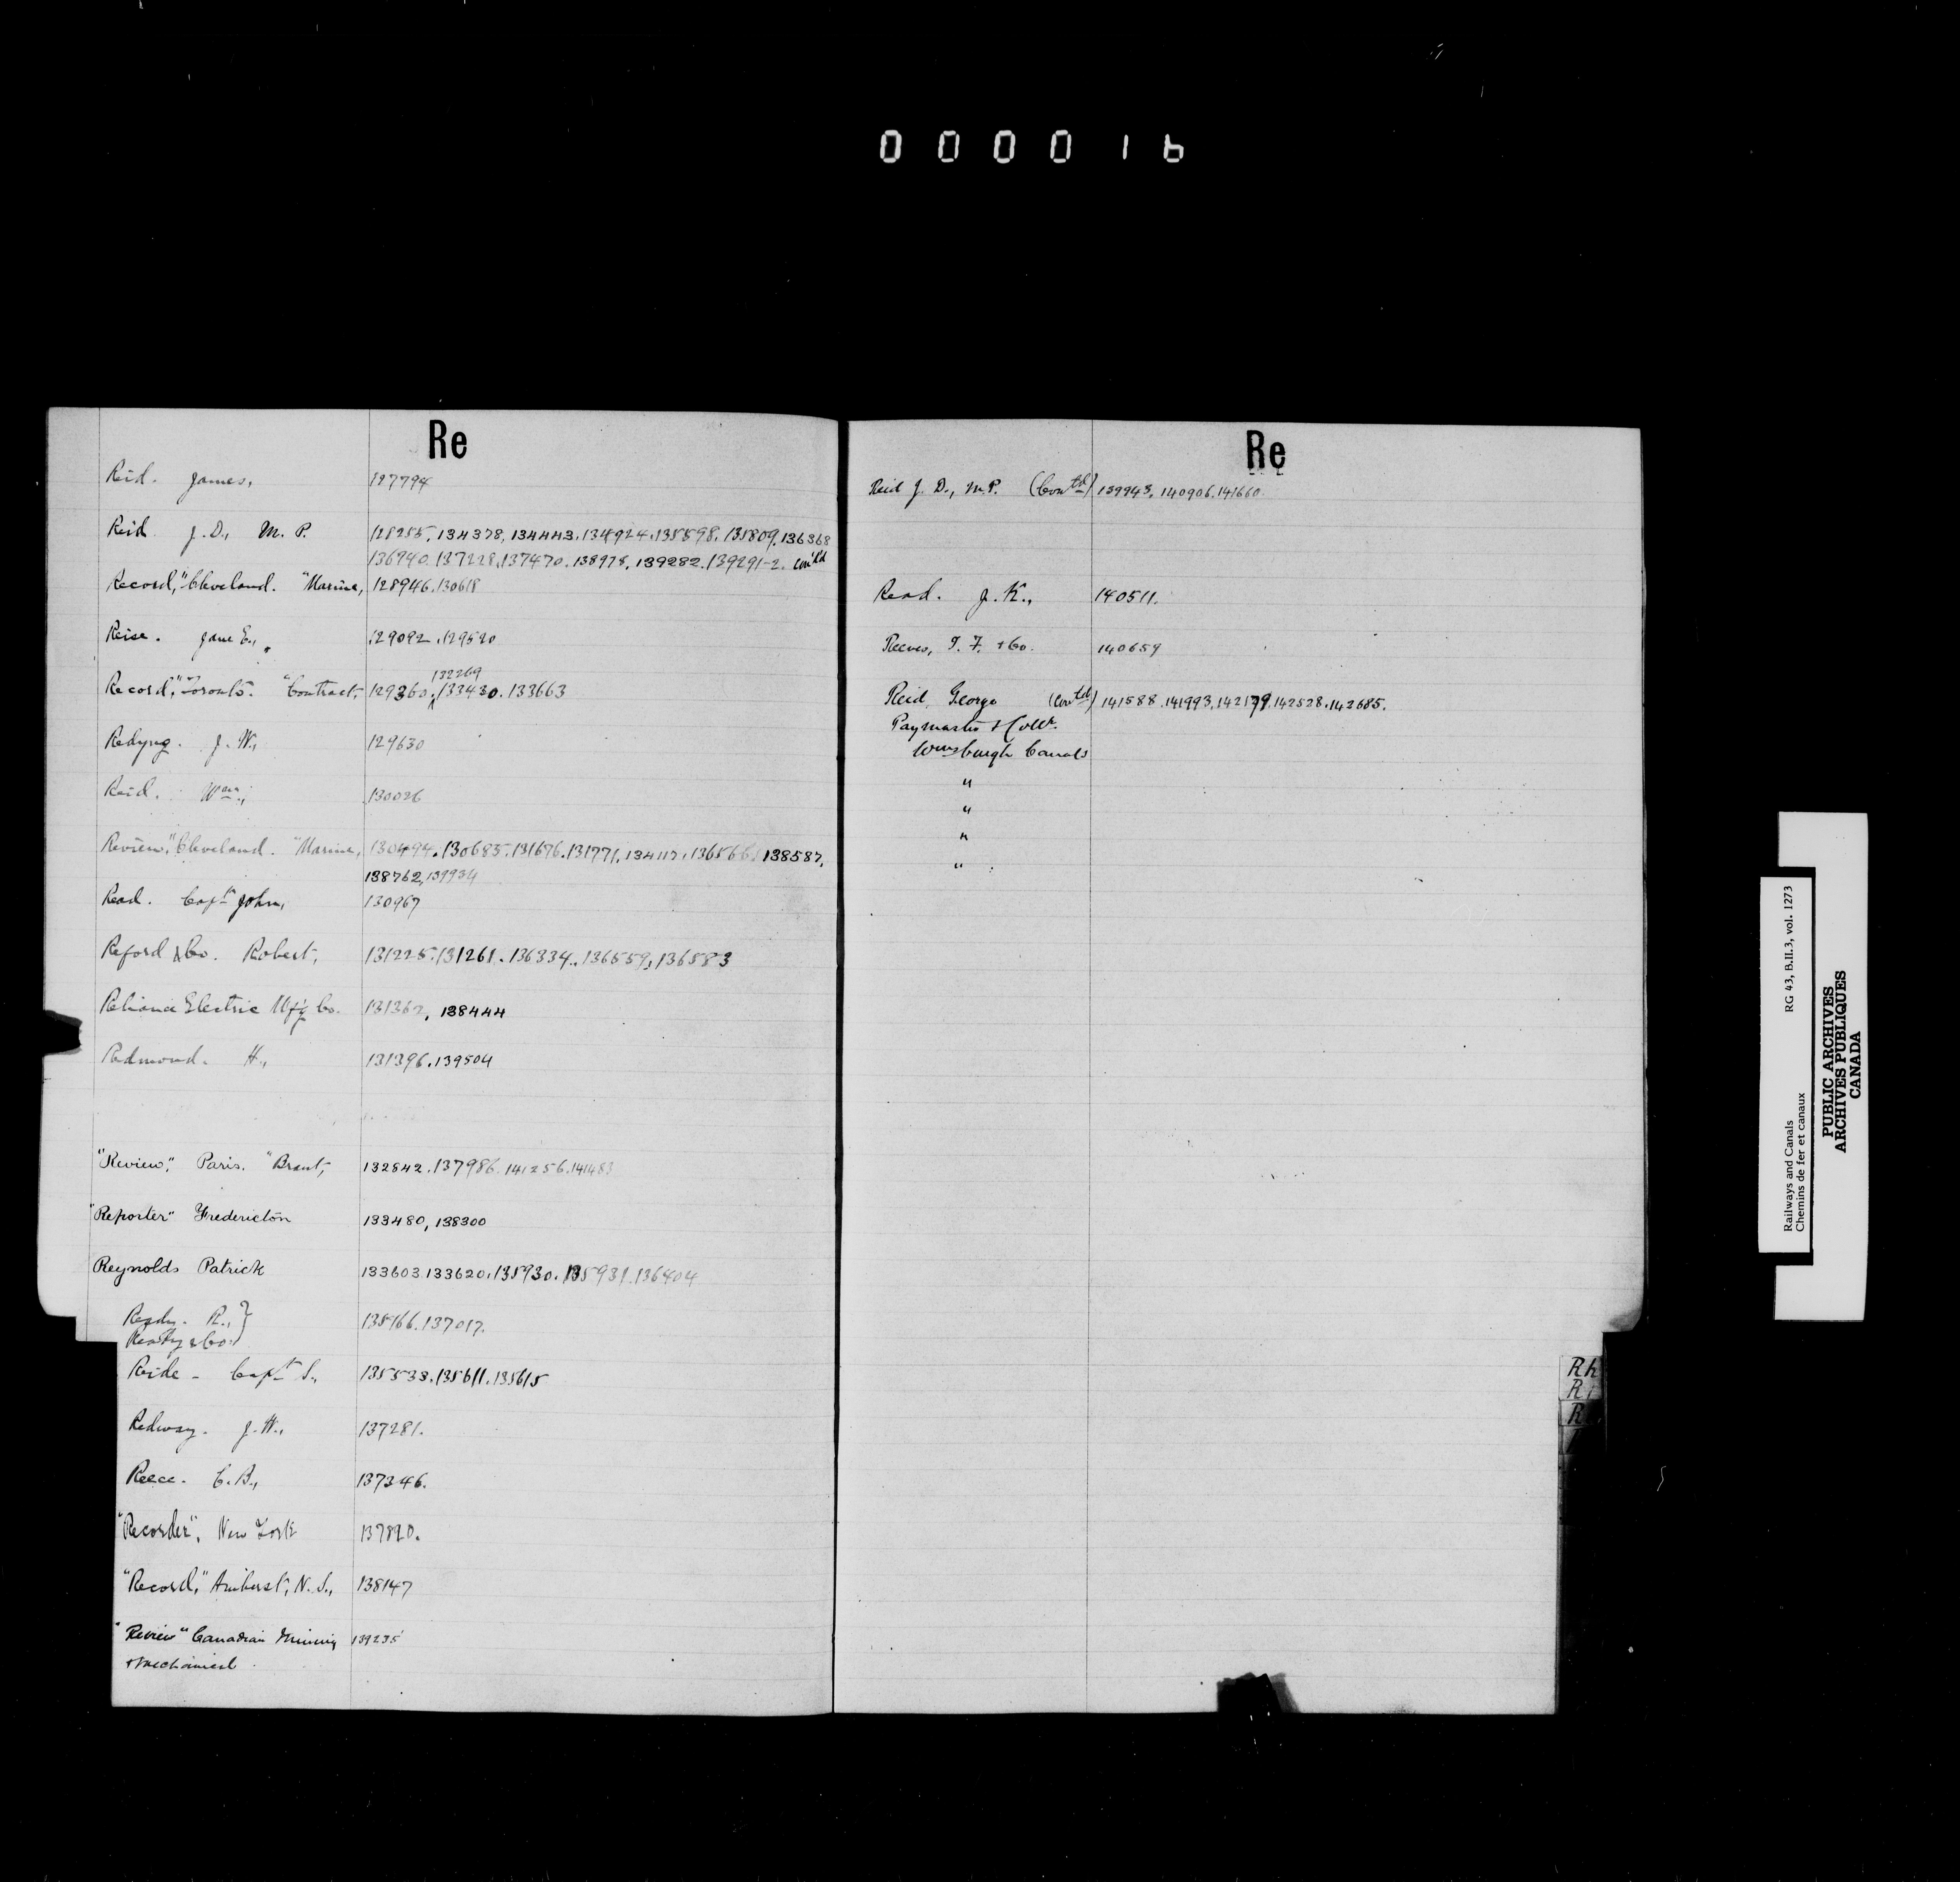 000016
Re
Reid. James, 127794
Reid. J.D., M.P. 128255, 134378, 134443, 134924, 135598, 135809, 136368
136740. 137228, 137470. 138978, 139282. 139291-2. cont'd
Record," Cleveland. "Marine, 128946. 130618
Reise. Jane E., 129092. 129520
132269
Record," Toronto. "Contract, 129360, 133430. 133663
Redyng. J. W., 129630
Reid. Wm., 130026
Review," Cleveland. "Marine, 130494. 130685. 131676. 131771, 134117, 138587,
138762, 139934
Read. Capt John, 130967
Reford & Co. Robert, 131225. 131261. 136334. 136559, 136583
Reliance Electric Mfg Co. 131362, 138444
Redmond. H., 131396. 139504
"Review," Paris. "Brant, 132842. 137986. 141256. 141483
"Reporter" Fredericton 133480, 138300
Reynolds Patrick 133603 133620. 135930. 135931. 136404
Ready. R., }
Ready & Co. } 135166. 137017.
Reide - Capt S., 135533. 135611. 135615
Redway. J. H., 137281.
Reece. C. B., 137346.
"Recorder", New York 137820.
"Record," Amherst, N. S., 138147
"Review" Canadian Mining 139235
& Mechanical
Re
Reid J. D., M.P. (Contd) 139943, 140906. 141660.
Read. J. K., 140511.
Reeves, T. F. & Co. 140659
Reid, George (Contd) 141588. 141993, 142179. 142528. 142685.
Paymaster & Collr.
Wmsburgh Canals
"
"
"
"
Rh
Ri
R
Railways and Canals RG 43, B.II.3, vol. 1273
Chemins de fer et canaux
PUBLIC ARCHIVES
ARCHIVES PUBLIQUES
CANADA